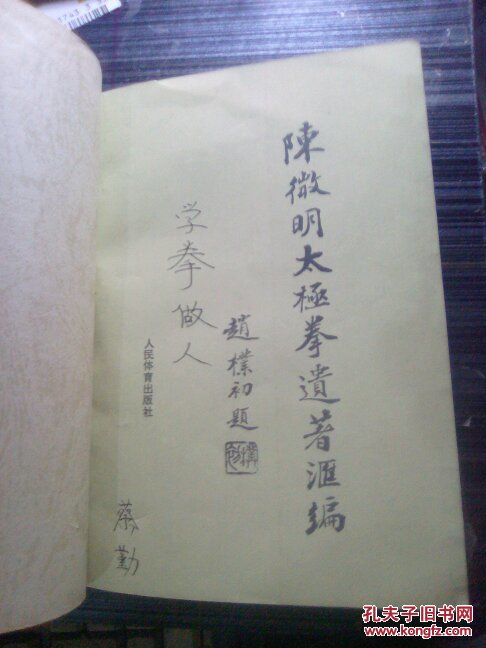 陳微明太極拳遺著滙編
趙樸初題
学拳做人
人民体育出版社
蔡勤
孔夫子旧书网
www.kongfz.com